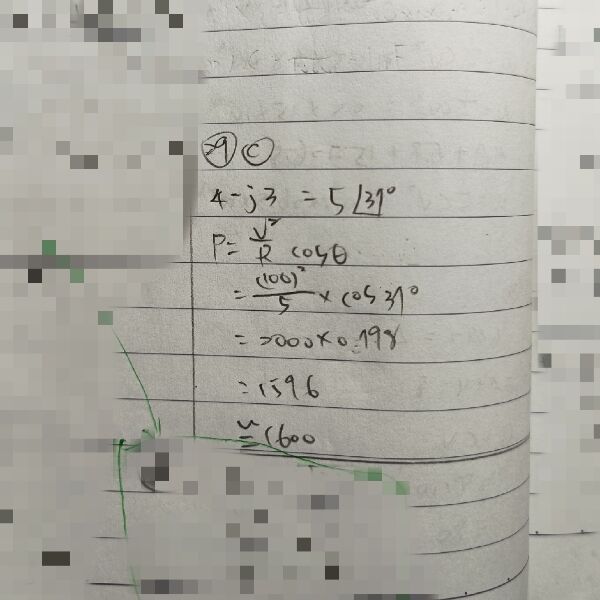 29 C
4-j3 = 5∠37°
P = V²/R cosθ
= (100)²/5 × cos 37°
= 2000×0.798
= 1596
≃ 1600